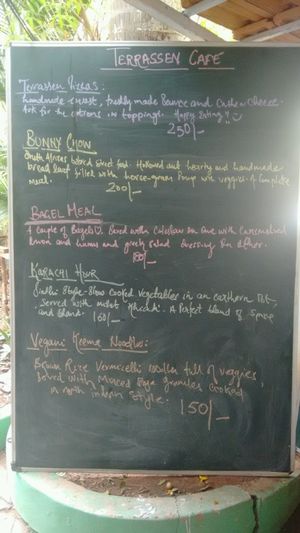 TERRASSEN CAFE
Terrassen Pizzas:
handmade crust, freshly made sauce and Cashew Cheese.
Ask for the options in toppings. Happy Eating!!
250/-
BUNNY CHOW
South African street food. Hollowed out hearty and handmade
bread loaf filled with horse-gram soup with veggies. A Complete
meal. 200/-
BAGEL MEAL
A couple of Bagels. One with Coleslaw and with Caramelised
Onion and hummus and salad dressing on other.
180/-
KARACHI HOUR
Sindhi Style-Slow Cooked Vegetables in an earthern Pot,
served with . A Perfect blend of Spice
and bland. 160/-
Vegani Keema Noodles:
Brown Rice Vermicelli noodles full of veggies,
served with Minced Soya granules cooked
in north indian style.
150/-